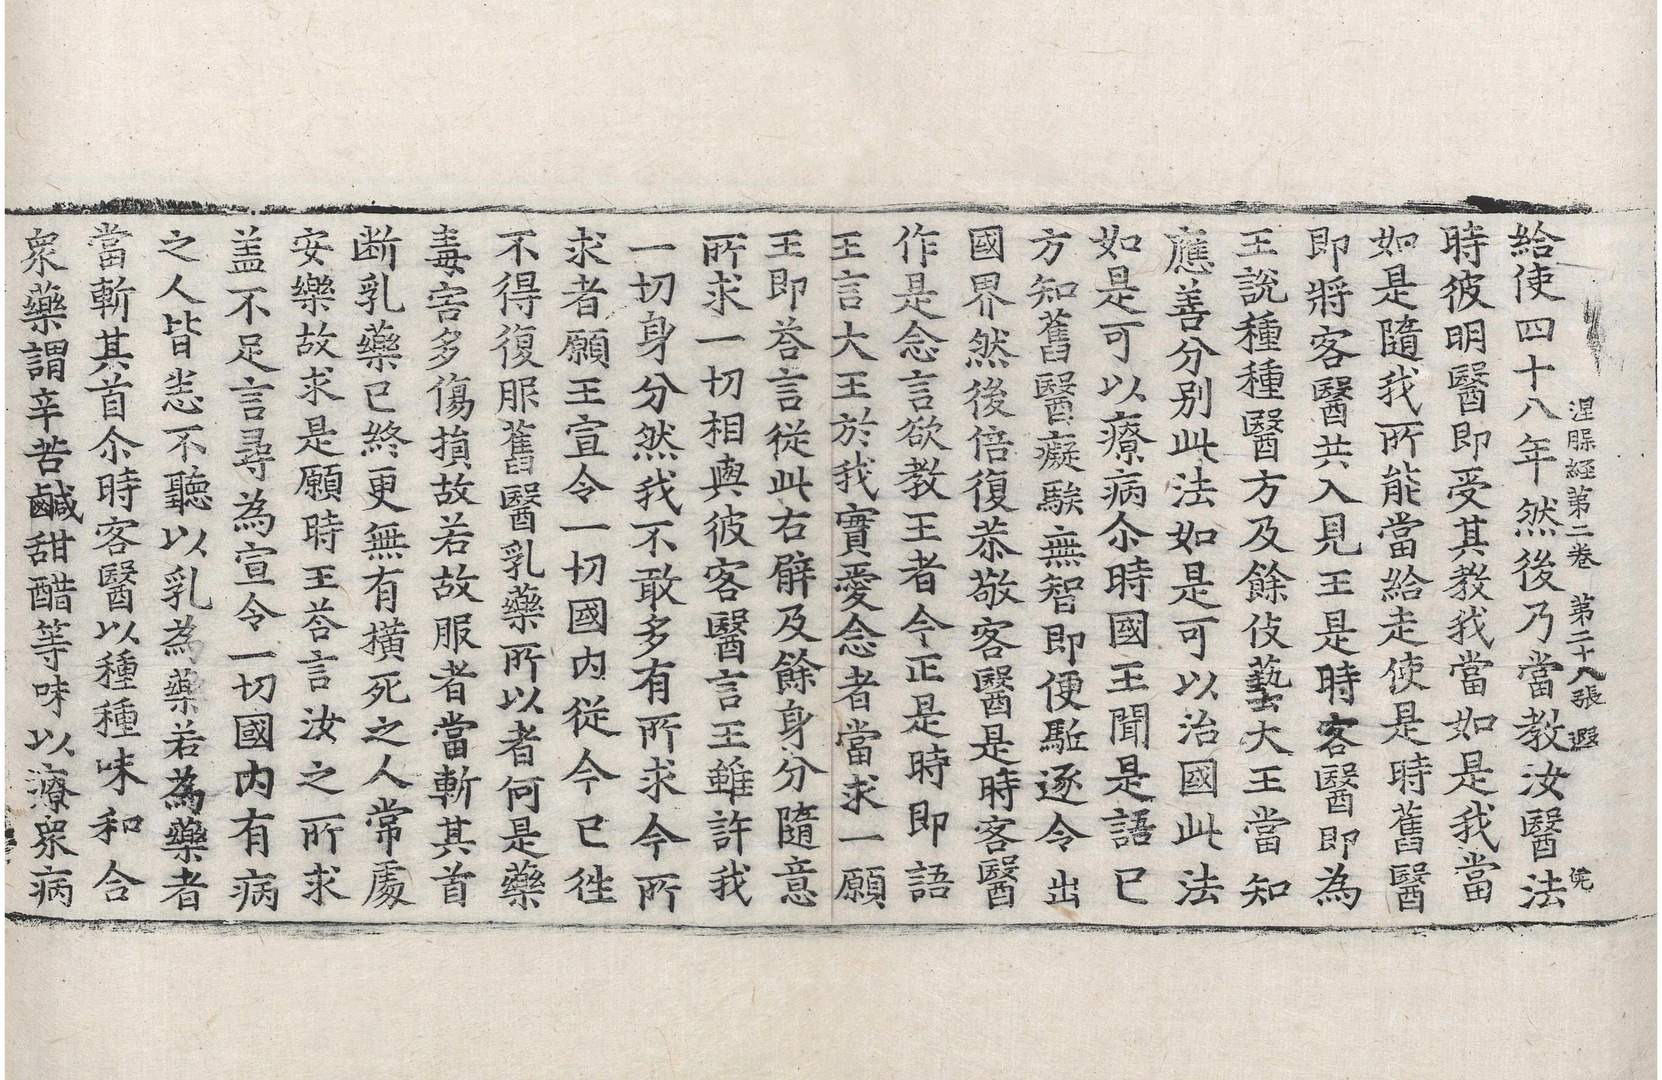 涅脲経第二卷 第二十八張 遐
給使四十八年然後乃當教汝醫法
時彼明醫即受其教我當如是我當
如是隨我所能當給走使是時舊醫
即將客醫共入見王是時客醫即為
王說種種醫方及餘伎藝大王當知
應善分別此法如是可以治國此法
如是可以療病尒時國王聞是語已
方知舊醫癡騃無智即便駈逐令出
國界然後倍復恭敬客醫是時客醫
作是念言欲教王者今正是時即語
王言大王於我實愛念者當求一願
王即荅言從此右臂及餘身分隨意
所求一切相與彼客醫言王雖許我
一切身分然我不敢多有所求今所
求者願王宣令一切國內從今已徃
不得復服舊醫乳藥所以者何是藥
毒害多傷損故若故服者當斬其首
断乳藥已終更無有橫死之人常處
安樂故求是願時王荅言汝之所求
盖不足言尋為宣令一切國內有病
之人皆悉不聽以乳為藥若為藥者
當斬其首尒時客醫以種種味和合
衆藥謂辛苦鹹甜醋等味以療衆病